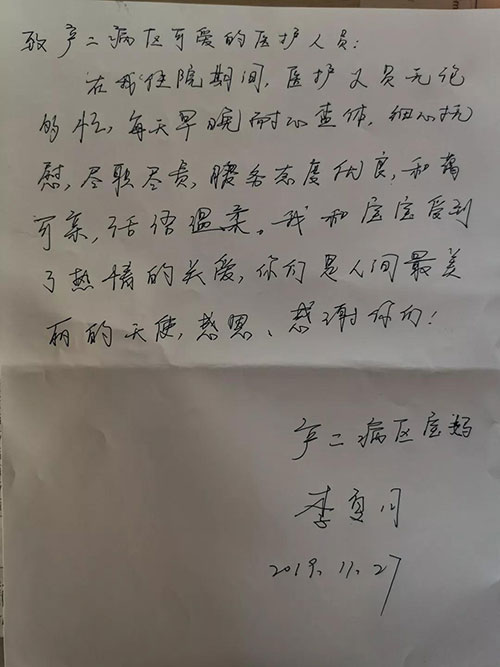 致产二病区可爱的医护人员:
在我住院期间,医护人员无论
的忙,每天早晚耐心查体,细心抚
慰,尽职尽责,服务态度优良,和蔼
可亲,话语温柔。我和宝宝受到
了热情的关爱,你们是人间最美
丽的天使,感恩、感谢你们!
产二病区宝妈
李
2019.11.27